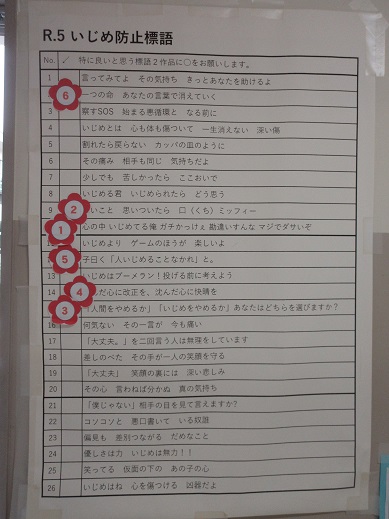 R.5 いじめ防止標語
No. ✓ 特に良いと思う標語2作品に○をお願いします。
1 言ってみてよ その気持ち きっとあなたを助けるよ
6 一つの命 あなたの言葉で消えていく
3 察すSOS 始まる悪循環と なる前に
4 いじめとは 心も体も傷ついて 一生消えない 深い傷
5 割れたら戻らない カッパの皿のように
6 その痛み 相手も同じ 気持ちだよ
7 少しでも 苦しかったら ここおいで
8 いじめる君 いじめられたら どう思う
9 2 いこと 思いついたら 口(くち)ミッフィー
1 心の中 いじめてる俺 ガチかっけぇ 勘違いすんな マジでダサいぞ
いじめより ゲームのほうが 楽しいよ
5 子曰く「人いじめることなかれ」と。
13 いじめはブーメラン!投げる前に考えよう
14 4 んだ心に改正を、沈んだ心に快晴を
3 「人間をやめるか」「いじめをやめるか」あなたはどちらを選びますか?
16 何気ない その一言が 今も痛い
17 「大丈夫。」を二回言う人は無理をしています
18 差しのべた その手が一人の笑顔を守る
19 「大丈夫」 笑顔の裏には 深い悲しみ
20 その心 言わねば分かぬ 真の気持ち
21 「僕じゃない」相手の目を見て言えますか?
22 コソコソと 悪口書いて いる奴誰
23 偏見も 差別つながる だめなこと
24 優しさは力 いじめは無力!!
25 笑ってる 仮面の下の あの子の心
26 いじめはね 心を傷つける 凶器だよ